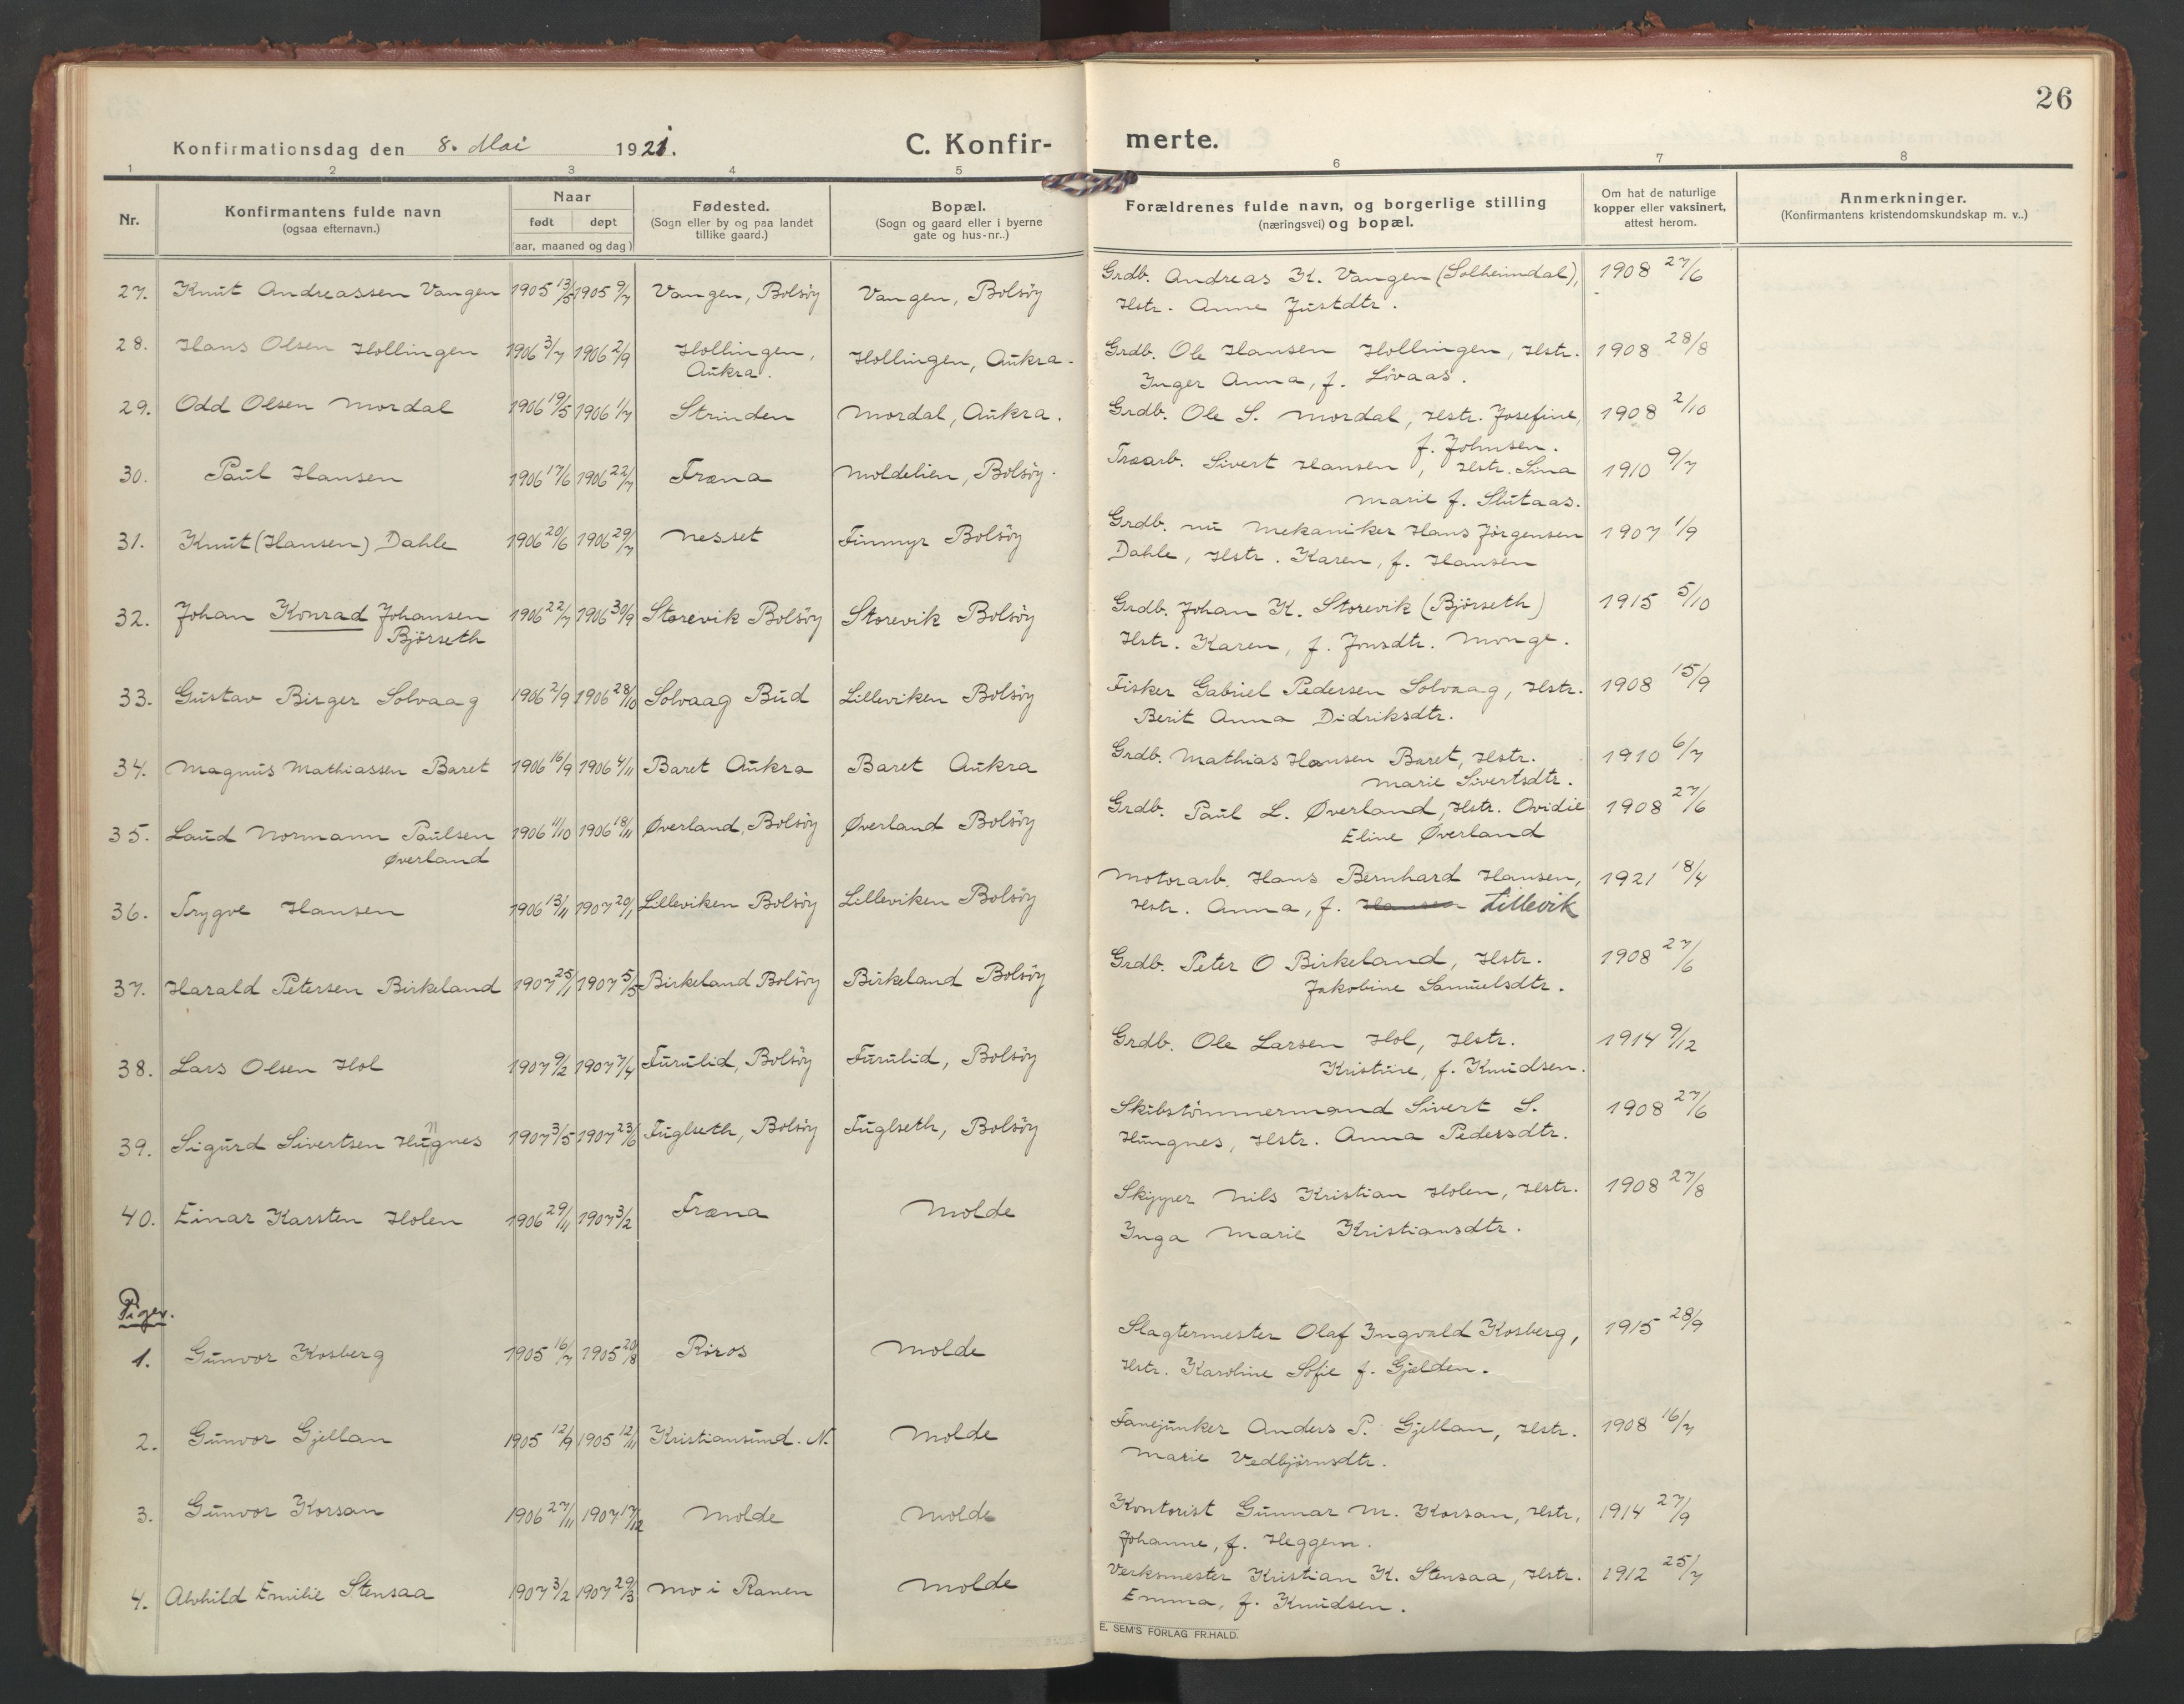 26
Konfirmationsdag den 8. Mai 1921.
C. Konfirmerte.
1 2 3 4 5 6 7 8
Nr.
Konfirmantens fulde navn
(ogsaa efternavn.)
Naar
født døpt
(aar, maaned og dag)
Fødested.
(Sogn eller by og paa landet
tillike gaard.)
Bopæl.
(Sogn og gaard eller i byerne
gate og hus-nr..)
Forældrenes fulde navn, og borgerlige stilling
(næringsvei) og bopæl.
Om hat de naturlige
kopper eller vaksinert,
attest herom.
Anmerkninger.
(Konfirmantens kristendomskundskap m. v..)
27. Knut Andreassen Vangen 1905 13/5 1905 9/7 Vangen, Bolsöy Vangen, Bolsöy Grdb. Andreas K. Vangen (Solheimdal), 1908 27/6
Hstr. Anne Justdtr.
28. Hans Olsen Hollingen 1906 3/7 1906 2/9 Hollingen, Hollingen, Aukra. Grdb. Ole Hansen Hollingen, Hstr. 1908 28/8
Aukra. Inger Anna, f. Lövaas.
29. Odd Olsen Mordal 1906 19/5 1906 1/7 Strinden Mordal, Aukra. Grdb. Ole S. Mordal, Hstr. Josefine, 1908 2/10
f. Johnsen.
30. Paul Hansen 1906 17/6 1906 22/7 Fræna Moldelien, Bolsöy. Træarb. Sivert Hansen, Hstr. Sina 1910 9/7
Marie f. Slutaas.
31. Knut (Hansen) Dahle 1906 20/6 1906 29/7 Nesset Finmyr Bolsöy Grdb. nu Mekaniker Hans Jörgensen 1907 1/9
Dahle, Hstr. Karen, f. Hansen
32. Johan Konrad Johansen 1906 22/7 1906 30/9 Storevik Bolsöy Storevik Bolsöy Grdb. Johan K. Storevik (Björseth) 1915 5/10
Björseth Hstr. Karen, f. Jonsdtr. Monge.
33. Gustav Birger Solvaag 1906 2/9 1906 28/10 Solvaag Bud Lilleviken Bolsöy Fisker Gabriel Pedersen Solvaag, Hstr. 1908 15/9
Berit Anna Didriksdtr.
34. Magnus Mathiassen Baret 1906 16/9 1906 4/11 Baret Aukra Baret Aukra Grdb. Mathias Hansen Baret, Hstr. 1910 6/7
Marie Sivertsdtr.
35. Laud Normann Paulsen 1906 11/10 1906 18/11 Øverland, Bolsöy Øverland Bolsöy Grdb. Paul L. Øverland, Hstr. Ovidie 1908 27/6
Øverland Eline Øverland
36. Trygve Hansen 1906 13/11 1907 20/1 Lilleviken Bolsöy Lilleviken Bolsöy Motorarb. Hans Bernhard Hansen, 1921 18/4
Hstr. Anna, f. Hansen Lillevik
37. Harald Petersen Birkeland 1907 25/1 1907 5/5 Birkeland Bolsöy Birkeland Bolsöy Grdb. Peter O Birkeland, Hstr. 1908 27/6
Jakobine Samuelsdtr.
38. Lars Olsen Hol 1907 9/2 1907 7/4 Furulid, Bolsöy Furulid, Bolsöy Grdb. Ole Larsen Hol, Hstr. 1914 9/12
Kristine, f. Knudsen.
39. Sigurd Sivertsen Hungnes 1907 3/5 1907 23/6 Fuglseth, Bolsöy Fuglseth, Bolsöy Skibstömmermand Sivert S. 1908 27/6
Hungnes, Hstr. Anna Pedersdtr.
40. Einar Karsten Holen 1906 29/11 1907 3/2 Fræna Molde Skipper Nils Kristian Holen, Hstr. 1908 27/8
Inga Marie Kristiansdtr.
Piger.
1. Gunvor Kosberg 1905 16/7 1905 20/8 Röros Molde Slagtermester Olaf Ingvald Kosberg, 1915 28/9
Hstr. Karoline Sofie f. Gjelden.
2. Gunvor Gjellan 1905 12/9 1905 12/11 Kristiansund. N. Molde Fanejunker Anders P. Gjellan, Hstr. 1908 16/7
Marie Vedbjörnsdtr.
3. Gunvor Korsan 1906 27/11 1907 17/12 Molde Molde Kontorist Gunnar M. Korsan, Hstr. 1914 27/9
Johanne, f. Heggem.
4. Alvhild Emilie Stensaa 1907 3/2 1907 29/3 Mo i Ranen Molde Verksmester Kristian K. Stensaa, Hstr. 1912 25/7
Emma, f. Knudsen.
E. SEM'S FORLAG FR.HALD.